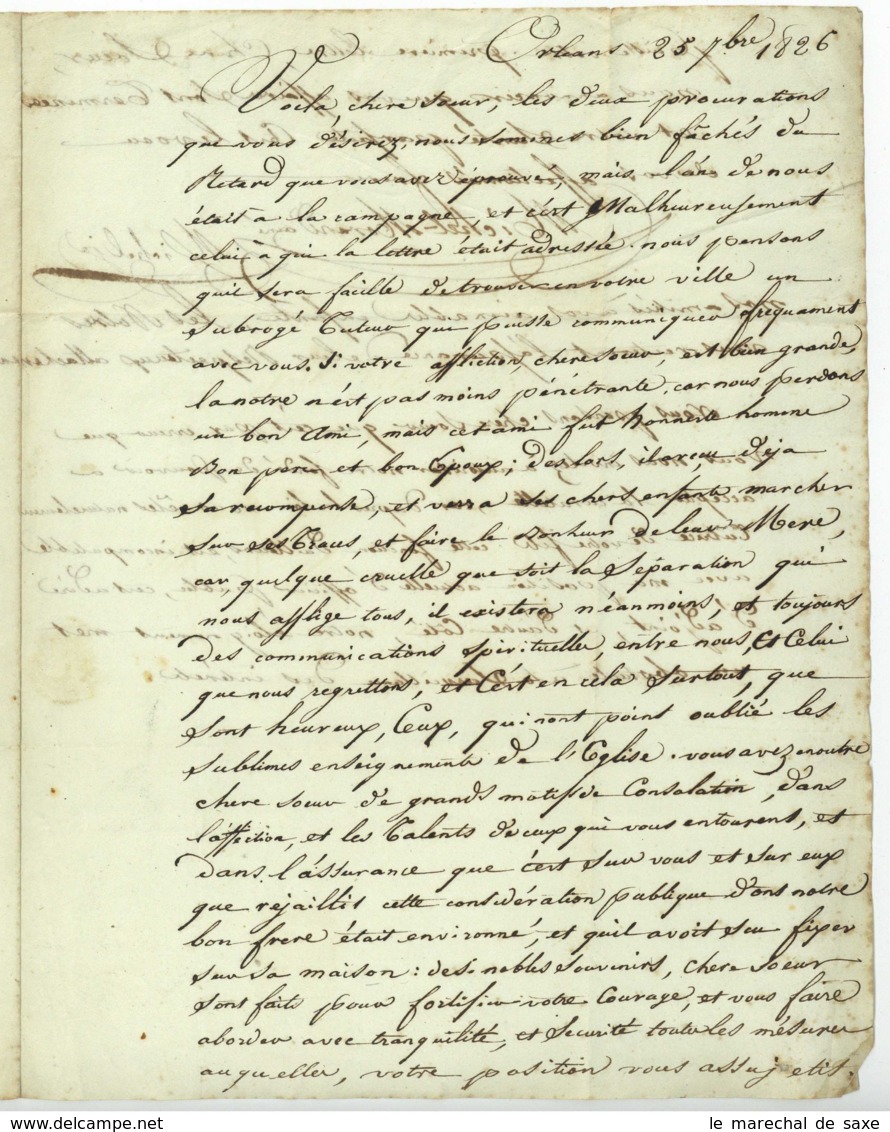 Orléans 25 7bre 1826
Voila, chere soeur, les deux procurations
que vous désirez, nous sommes bien fâchés du
Retard que vous avez éprouvé, mais l'un de nous
était à la campagne, et c'est Malheureusement
celui à qui la lettre était adressée. nous pensons
qu'il sera facille de trouver en votre ville un
Subrogé Tuteur que puisse communiquer frequament
avec vous. Si votre affliction, chere soeur, est bien grande,
la notre n'est pas moins pénétrante, car nous perdons
un bon Ami, mais cet ami fut honneste homme
Bon pere et bon Epoux; des lors, il a reçu déja
Sa recompense, et verra ses chers enfants marcher
Sur ses Traces, et faire le Bonheur de leur Mere,
car quelque cruelle que soit la Séparation qui
nous afflige tous, il existera néanmoins, et toujours
des communications spirituelles, entre nous, et Celui
que nous regrettons, et C'est en cela Surtout, que
Sont heureux, Ceux, qui n'ont point oublié les
Sublimes enseignements de l'Eglise. vous avez en outre
chere soeur de grands motifs de Consolation, dans
l'affection, et les Talents de ceux qui vous entourent, et
dans l'assurance que c'est sur vous et sur eux
que rejaillis cette considération publique dont notre
bon frere était environné, et qu'il avoit seu fixer
sur sa maison: des nobles souvenirs, chere soeur
Sont faits pour fortifier votre Courage, et vous faire
aborder avec tranquilité, et Securité toutes les mésures
auquelles, votre position vous assujetit.
le marechal de saxe